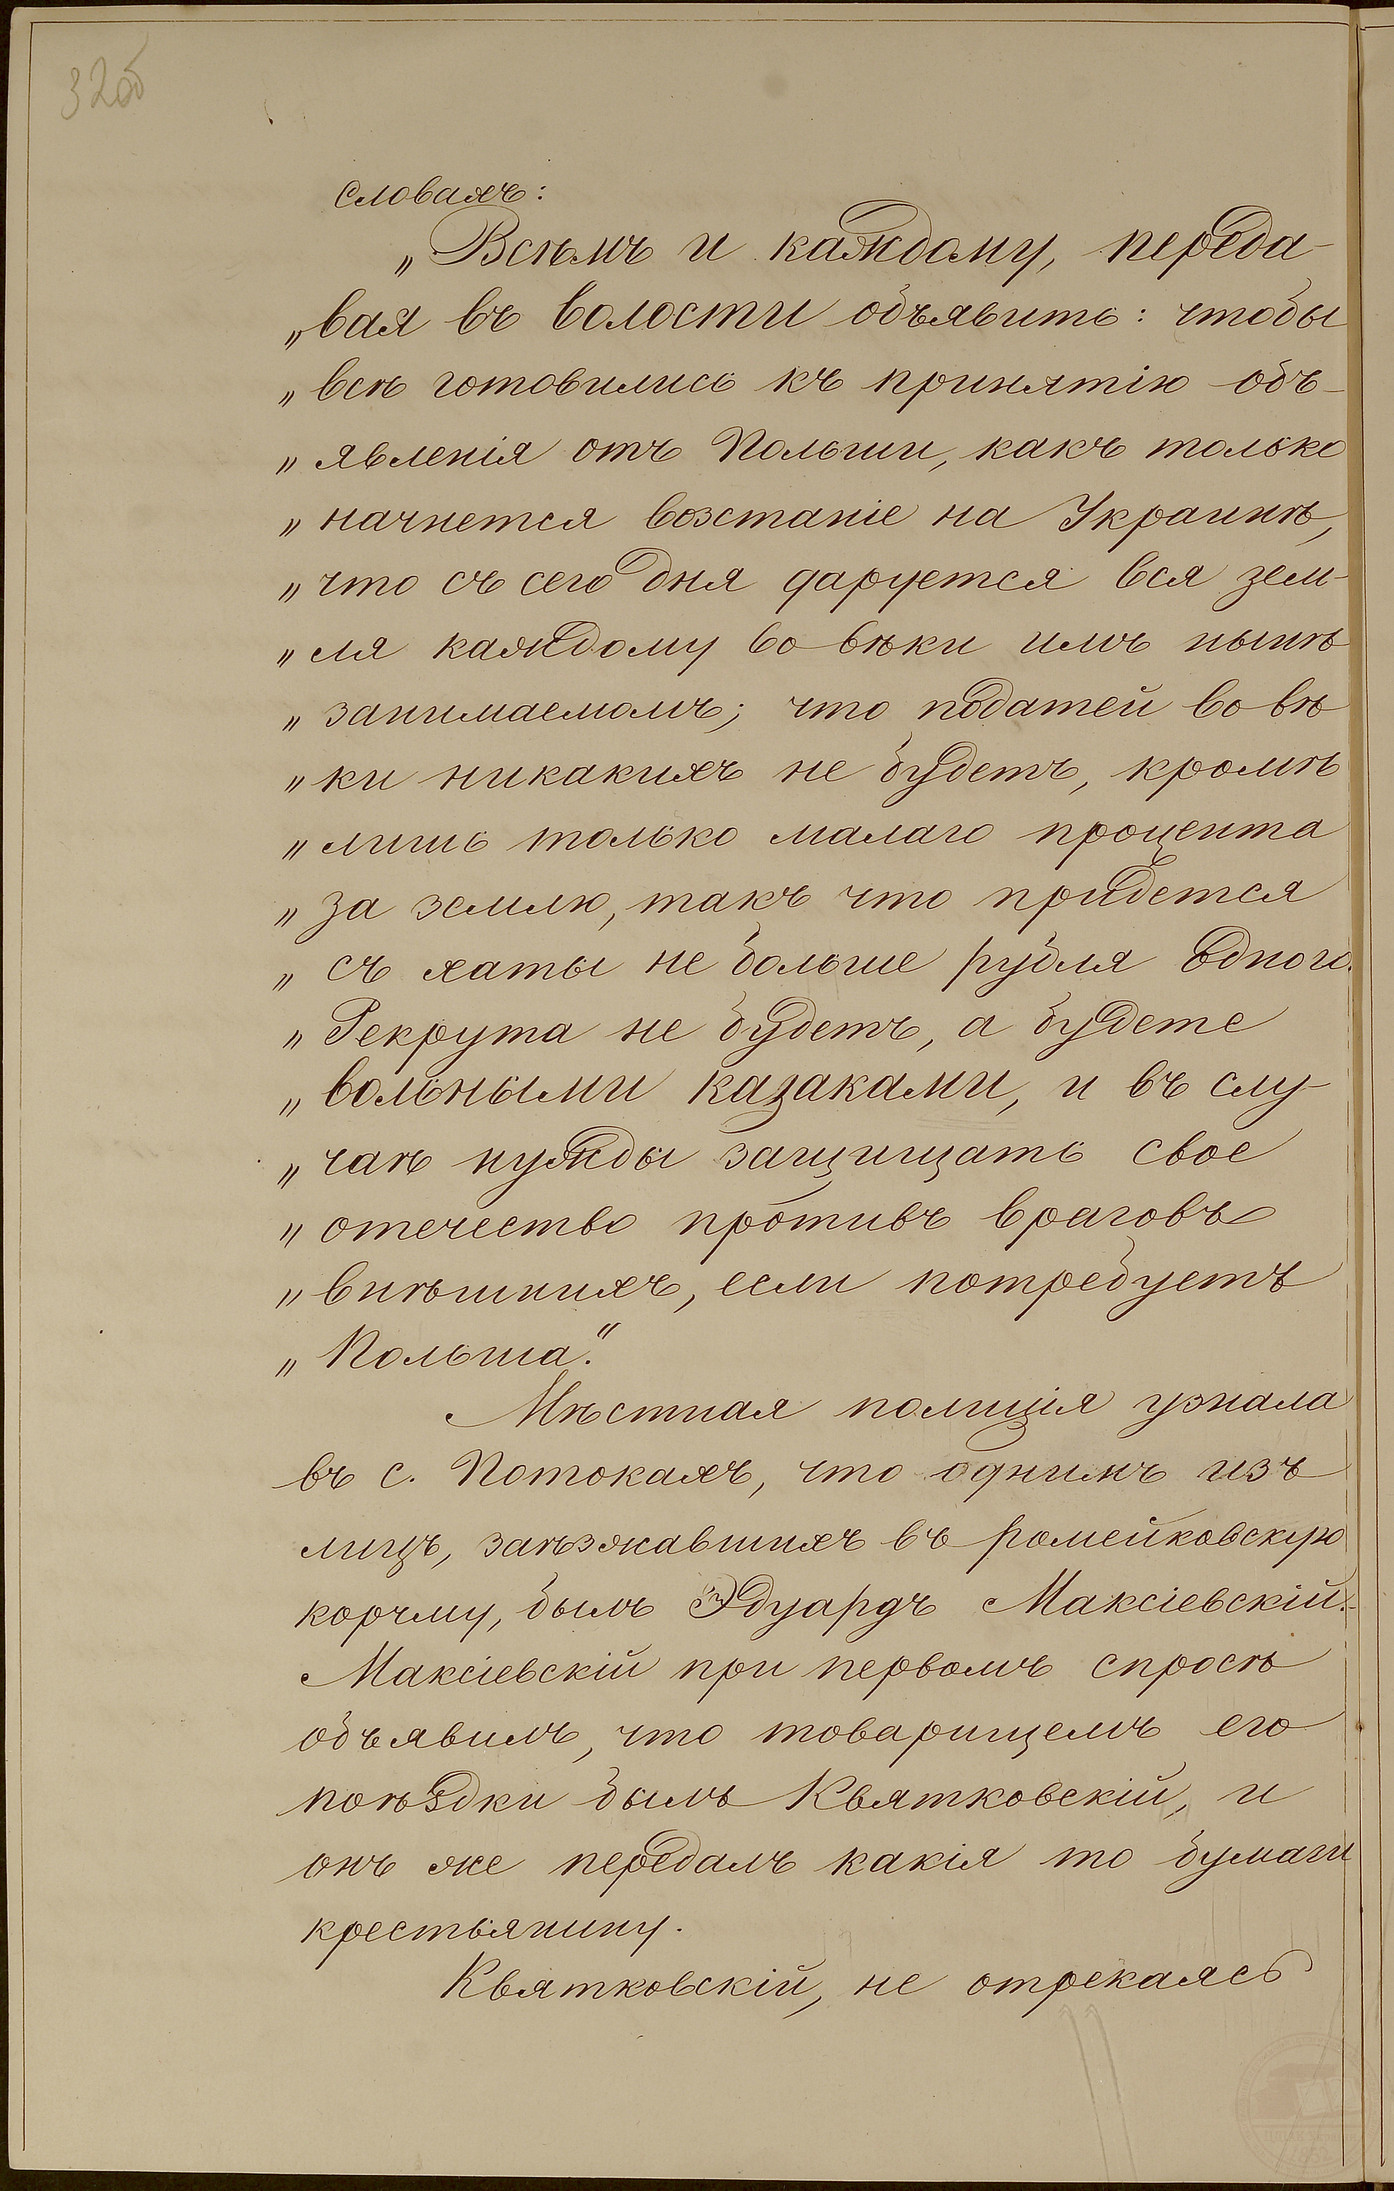 32об
словахъ:
„Всѣмъ и каждому, переда-
„вая въ волости объявить: чтобы
„всѣ готовились къ принятію объ-
„явленія отъ Польши, какъ только
„начнется возстаніе на Украинѣ,
„что съ сего дня даруется вся зем-
„ля каждому во вѣки имъ нынѣ
„занимаемомъ; что податей во вѣ
„ки никакихъ не будетъ, кромѣ
„лишь только малаго процента
„за землю, такъ что придется
„съ хаты не больше рубля одного.
„Рекрута не будетъ, а будете
„вольными казаками, и въ слу-
„чаѣ нужды защищать свое
„отечество противъ враговъ
„внѣшнихъ, если потребуетъ
„Польша."
Мѣстная полиція узнала
въ с. Потокахъ, что однимъ изъ
лицъ, заѣзжавшихъ въ ромейковскую
корчму, былъ Эдуардъ Максіевскій.
Максіевскій при первомъ спросѣ
объявилъ, что товарищемъ его
поѣздки былъ Квятковскій, и
онъ же передалъ какія то бумаги
крестьянину.
Квятковскій, не отрекаясь